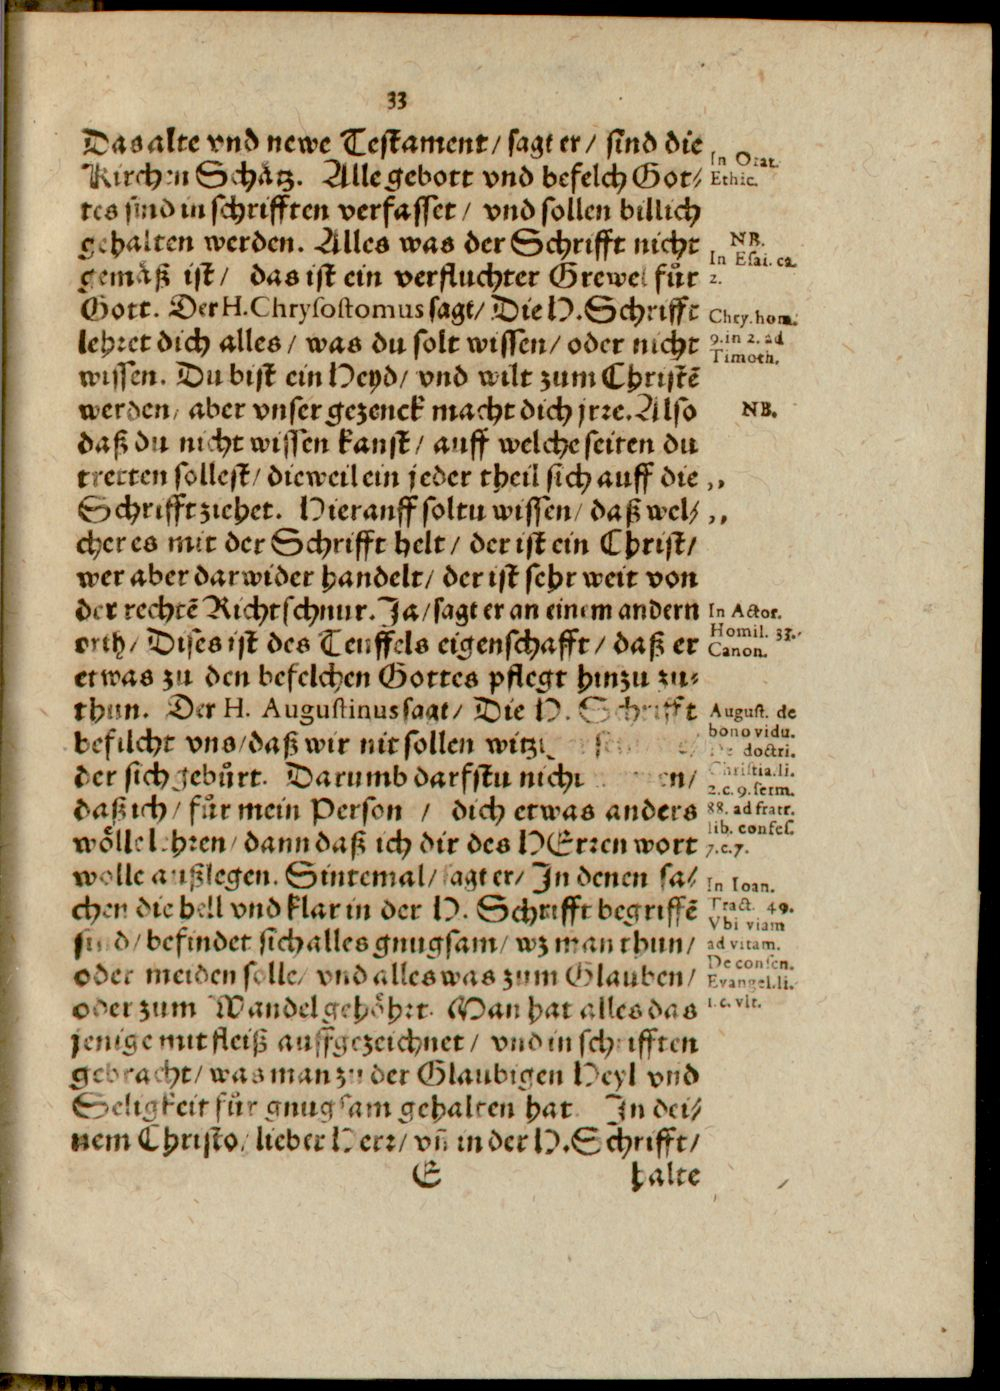 33
Das alte vnd newe Testament/ sagt er/ sind die
Kirchen Schätz. Alle gebott vnd befelch Got⸗
tes sind in schrifften verfasset/ vnd sollen billich
gehalten werden. Alles was der Schrifft nicht
gemäß ist/ das ist ein verfluchter Grewel für
Gott. Der H. Chrysostomus sagt/ Die H. Schrifft
lehret dich alles/ was du solt wissen/ oder nicht
wissen. Du bist ein Heyd/ vnd wilt zum Christē
werden/ aber vnser gezenck macht dich jrre. Also
daß du nicht wissen kanst/ auff welche seiten du
tretten sollest/ dieweil ein jeder theil sich auff die
Schrifft ziehet. Hierauff soltu wissen/ daß wel⸗
cher es mit der Schrifft helt/ der ist ein Christ/
wer aber darwider handelt/ der ist sehr weit von
der rechtē Richtschnur. Ja/ sagt er an einem andern
orth/ Dises ist des Teuffels eigenschafft/ daß er
etwas zu den befelchen Gottes pflegt hinzu zu⸗
thun. Der H. Augustinus sagt/ Die H. Schrifft
befilcht vns/ daß wir nit sollen
der sich gebürt. Darumb darfstu nicht
daß ich/ für mein Person / dich etwas anders
wölle lehren/ dann daß ich dir des HErren wort
wolle außlegen. Sintemal/ sagt er/ In denen sa⸗
chen die hell vnd klar in der H. Schrifft begriffē
sind/ befindet sich alles gnugsam/ wz man thun/
oder meiden solle/ vnd alles was zum Glauben/
oder zum Wandel gehöhrt. Man hat alles das
jenige mit fleiß auffgezeichnet/ vnd in schrifften
gebracht/ was man zu der Glaubigen Heyl vnd
Seligkeit für gnugsam gehalten hat. In dei⸗
nem Christo/ lieber Herr/ vñ in der H. Schrifft/
E halte
In Orat.
Ethic.
NB.
In Esai. ca.
2.
Chry. hom.
9. in 2. ad
Timoth.
NB.
,,
,,
In Actor.
Homil. 33.
Canon.
August. de
bono vidu.
De doctri.
Christia. li.
2. c. 9. serm.
88. ad fratr.
lib. confes.
7. c. 7.
In Ioan.
Tract. 49.
Vbi viam
ad vitam.
De consen.
Evangel. li.
1. c. vlt.